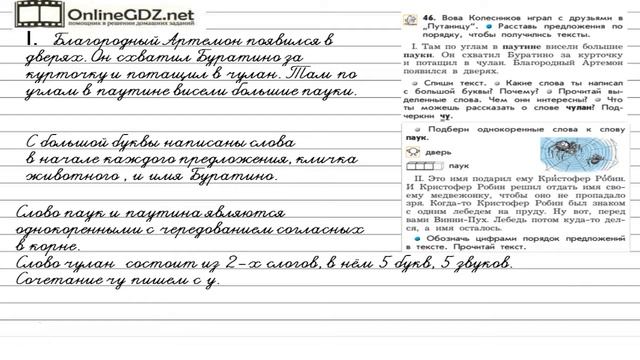 OnlineGDZ.net
помощник в решении домашних заданий
1. Благородный Артемон появился в
дверях. Он схватил Буратино за
курточку и потащил в чулан. Там по
углам в паутине висели большие пауки.
С большой буквы написаны слова
в начале каждого предложения, кличка
животного , и имя Буратино.
Слово паук и паутина являются
однокоренными с чередованием согласных
в корне.
Слово чулан состоит из 2-х слогов, в нём 5 букв, 5 звуков.
Сочетание чу пишем с у.
46. Вова Колесников играл с друзьями в
„Путаницу“. Расставь предложения по
порядку, чтобы получились тексты.
I. Там по углам в паутине висели большие
пауки. Он схватил Буратино за курточку
и потащил в чулан. Благородный Артемон
появился в дверях.
Спиши текст. Какие слова ты написал
с большой буквы? Почему? Прочитай вы-
деленные слова. Чем они интересны? Что
ты можешь рассказать о слове чулан? Под-
черкни чу.
Подбери однокоренные слова к слову
паук.
дверь
паук
II. Это имя подарил ему Кристофер Робин.
И Кристофер Робин решил отдать имя сво-
ему медвежонку, чтобы оно не пропадало
зря. Когда-то Кристофер Робин был знаком
с одним лебедем на пруду. Ну вот, перед
вами Винни-Пух. Лебедь потом куда-то дел-
ся, а имя осталось.
Обозначь цифрами порядок предложений
в тексте. Прочитай текст.